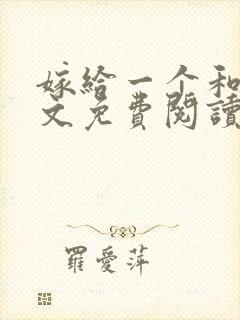 嫁给一个和
文免费閱讀
羅愛萍